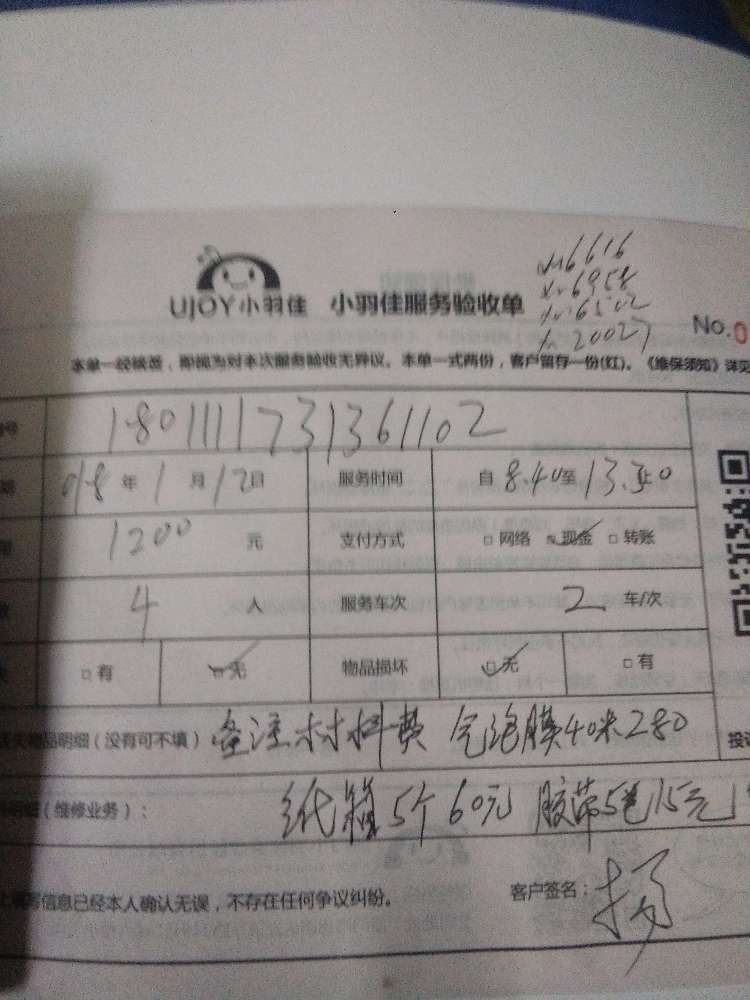 6616
6958
6502
20027
UJOY小羽佳 小羽佳服务验收单
No.0
本单一经核签，即视为对本次服务验收无异议。本单一式两份，客户留存一份(红)。《维保须知》详见
号 1801111731361102
年 1 月 12 日 服务时间 自 8.40 至 13.50
1200 元 支付方式 □网络 现金 □转账
4 人 服务车次 2 车/次
□有 □无 物品损坏 □无 □有
物品明细（没有可不填） 备注材料费 气泡膜40米280
投诉
明细（维修业务）： 纸箱5个60元 胶带5卷15元
信息已经本人确认无误，不存在任何争议纠纷。 客户签名： 杨